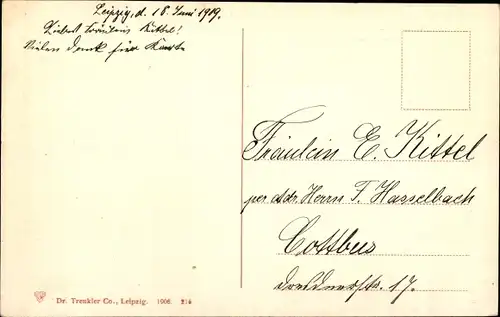 Leipzig, d. 18. Juni 1919.
Liebes Fräulein Kittel!
Vielen Dank für Karte
Fräulein E. Kittel
per Adr. Herrn F. Hasselbach
Cottbus
Dresdnerstr. 17.
Dr. Trenkler Co., Leipzig. 1906. 216